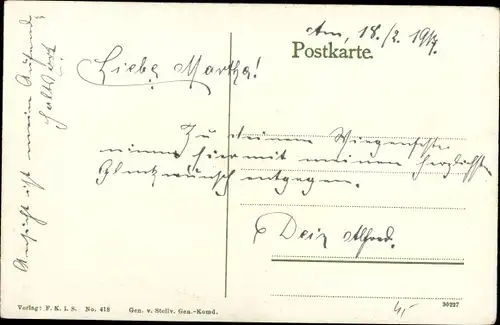 Am, 18./2. 1917.
Postkarte.
Liebe Martha!
Zu deinem Wiegenfeste
nimm hiermit meinen herzlichsten
Glückwunsch entgegen.
Dein Alfred.
Ansicht ist mein
Verlag: F. K. i. S. No. 418 Gen. v. Stellv. Gen.-Komd.
30227